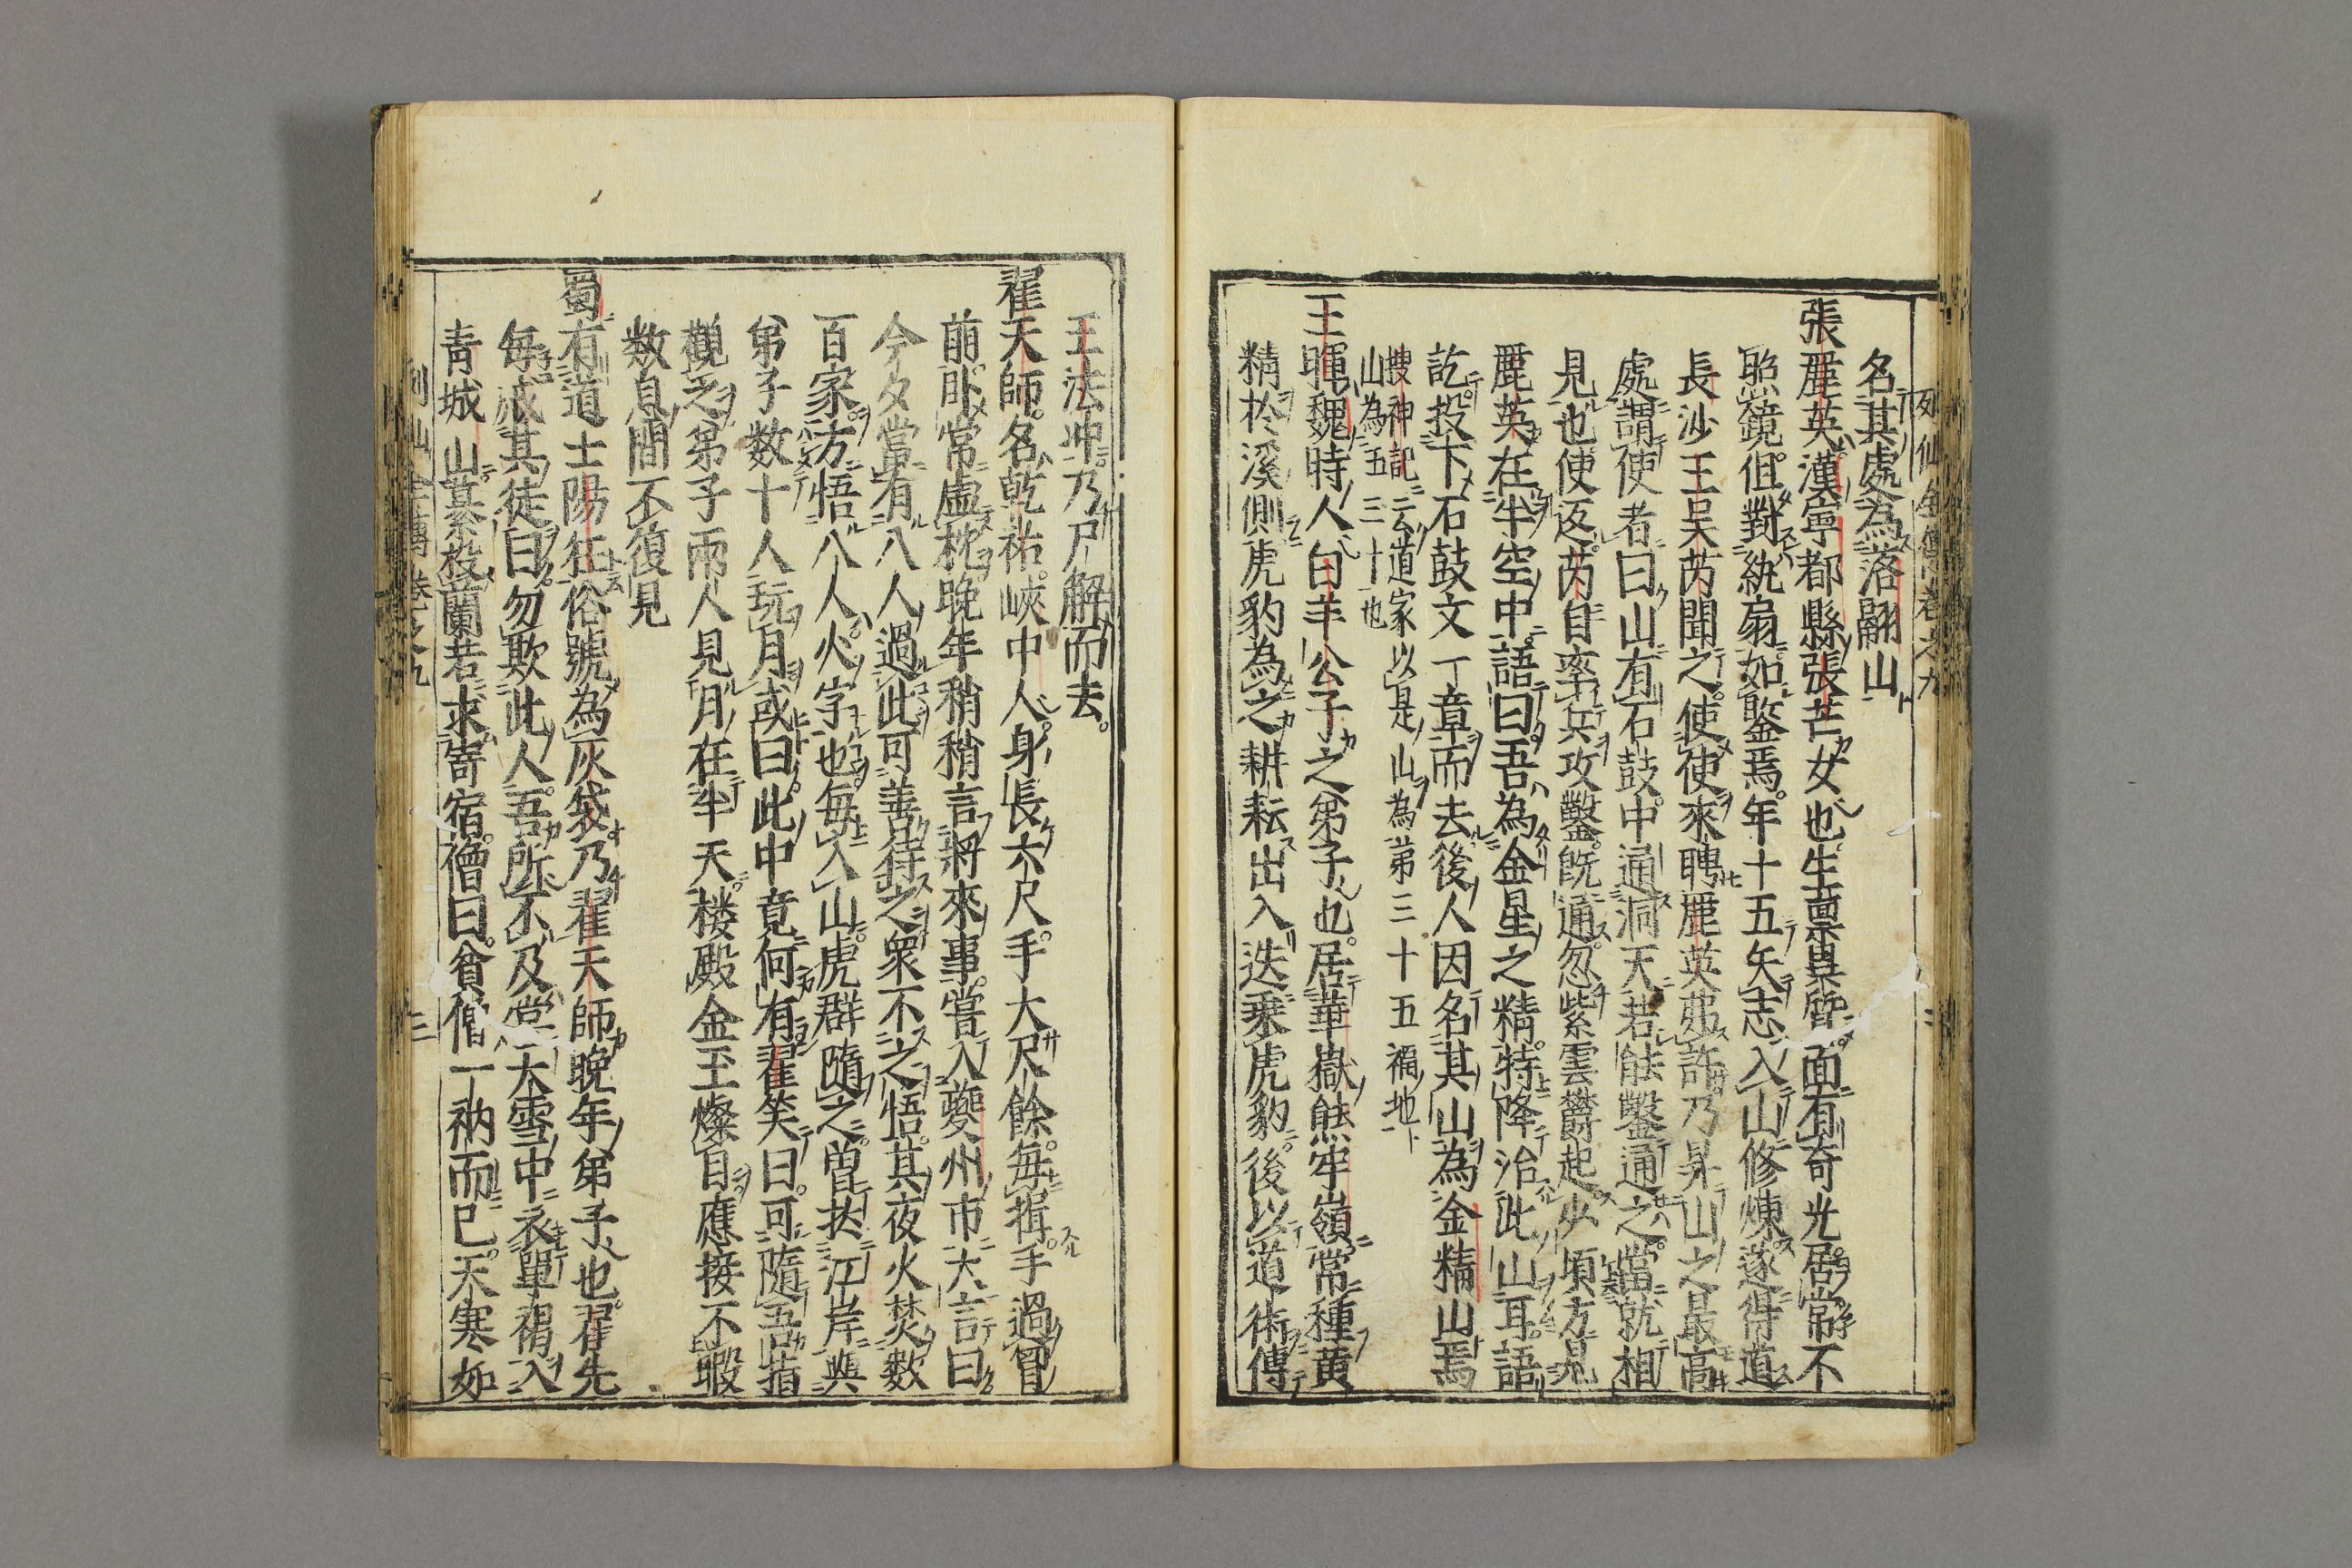 名其處為落翮山
張麗英漢寧都縣張芒女也生禀異質面有奇光居常不
照鏡但對紈扇如鑒焉年十五矢志入山修煉遂得道
長沙王吴芮聞之使使來聘麗英弗許乃昇山之最高
處謂使者曰山有石鼓中通洞天若能鑿通之當就相
見也使返芮自率兵攻鑿既通忽紫雲欝起少頃方見
麗英在半空中語曰吾為金星之精特降治此山耳語
訖投下石鼓文一章而去後人因名其山為金精山焉
搜神記云道家以是山為第三十五福地一
山為五三十也
王暉魏時人白羊公子之弟子也居華嶽熊牢嶺常種黄
精於溪側虎豹為之耕耘出入迭乗虎豹後以道術傳
王法冲乃尸解而去
翟天師名乾祐峽中人身長六尺手大尺餘每揖手過胷
前卧常虚枕晩年稍稍言將來事嘗入夔州市大言曰
今夕當有八人過此可善待之衆不之悟其夜火焚數
百家方悟八人火字也每入山虎群隨之曽於江岸與
弟子数十人玩月或曰此中竟何有翟笑曰可隨吾指
觀之弟子兩人見月在半天楼殿金玉燦目應接不暇
数息間不復見
蜀有道士陽狂俗號為灰袋乃翟天師晩年弟子也翟先
每戒其徒曰勿欺此人吾所不及嘗大雪中衣單褐入
青城山暮投蘭若求寄宿僧曰貧僧一衲而已天寒如
列仙全傳卷之九 二